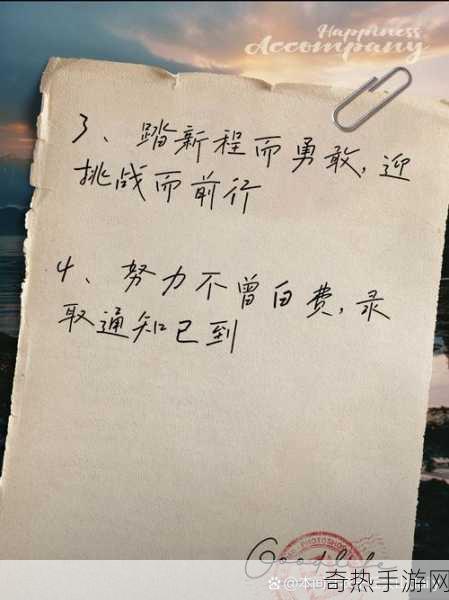 Happiness
Accompany
3、踏新程而勇敢,迎
挑战而前行
4、努力不曾白费,录
取通知已到
Good life
奇热手游网